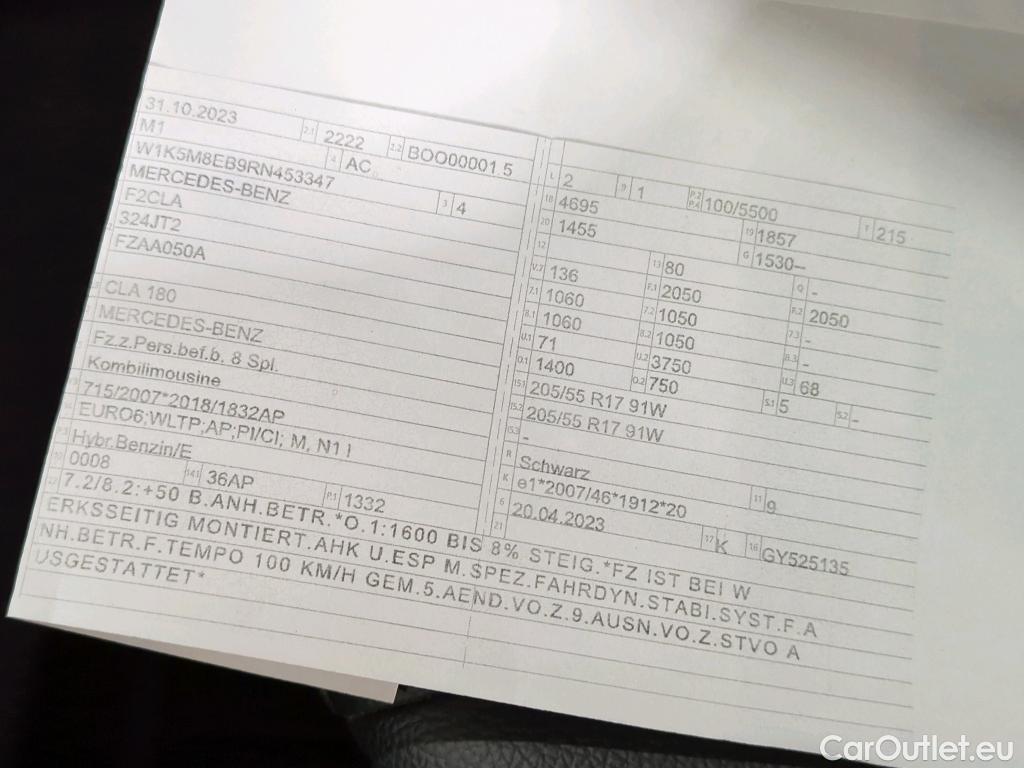 31.10.2023 2.1 2222 2.2 BOO00001.5
M1 4 AC
W1K5M8EB9RN453347 3 4
MERCEDES-BENZ
F2CLA
324JT2
FZAA050A
CLA 180
MERCEDES-BENZ
Fz.z.Pers.bef.b. 8 Spl.
Kombilimousine
715/2007*2018/1832AP
EURO6;WLTP;AP;PI/CI; M, N1 I
Hybr.Benzin/E
0008 14.1 36AP P.1 1332
L 2 9 1 P.2 P.4 100/5500 T 215
18 4695 19 1857
20 1455 G 1530–
12 13 80 Q -
V.7 136 F.1 2050 F.2 2050
7.1 1060 7.2 1050 7.3 -
8.1 1060 8.2 1050 8.3 -
U.1 71 U.2 3750 U.3 68
O.1 1400 O.2 750 S.1 5 S.2 -
15.1 205/55 R17 91W
15.2 205/55 R17 91W
15.3 -
R Schwarz 11 9
K e1*2007/46*1912*20
6 20.04.2023 17 K 16 GY525135
21
7.2/8.2:+50 B.ANH.BETR.*O.1:1600 BIS 8% STEIG.*FZ IST BEI W
ERKSSEITIG MONTIERT.AHK U.ESP M.SPEZ.FAHRDYN.STABI.SYST.F.A
NH.BETR.F.TEMPO 100 KM/H GEM.5.AEND.VO.Z.9.AUSN.VO.Z.STVO A
USGESTATTET*
CarOutlet.eu